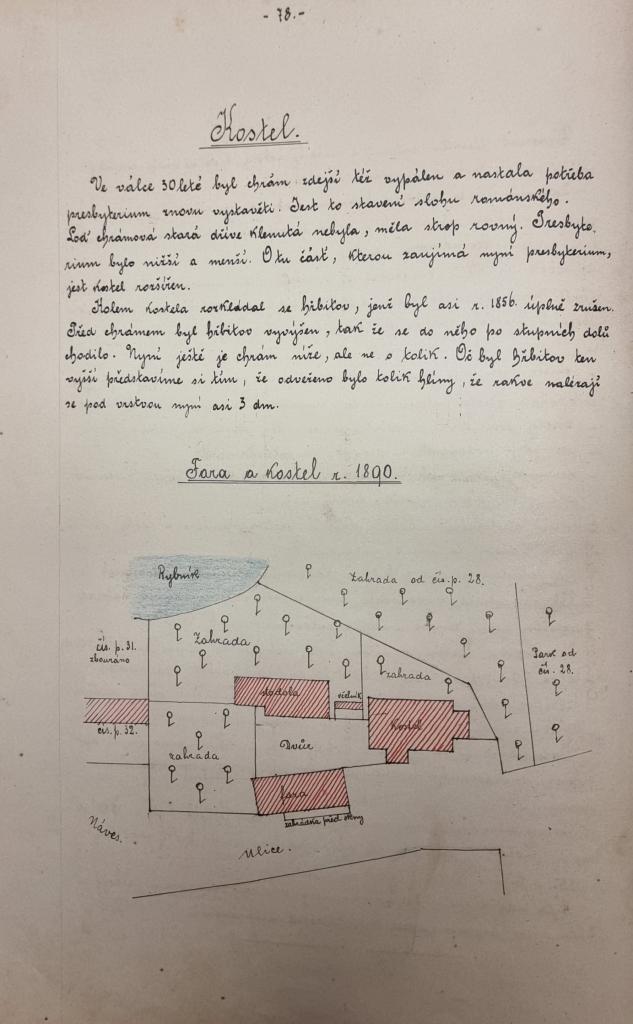 - 78. -
Kostel.
Ve válce 30leté byl chrám zdejší též vypálen a nastala potřeba
presbyterium znovu vystavěti. Jest to stavení slohu románského.
Loď chrámová stará dříve klenutá nebyla, měla strop rovný. Presbyte,
rium bylo nižší a menší. O tu část, kterou zaujímá nyní presbyterium,
jest kostel rozšířen.
Kolem kostela rozkládal se hřbitov, jenž byl asi r. 1856. úplně zrušen.
Před chrámem byl hřbitov vyvýšen, tak že se do něho po stupních dolů
chodilo. Nyní ještě je chrám níže, ale ne o tolik. Oč byl hřbitov ten
vyšší představíme si tím, že odveženo bylo tolik hlíny, že rakve nalézají
se pod vrstvou nyní asi 3 dm.
Fara a kostel r. 1890.
Rybník
Zahrada od čís. p. 28.
čís. p. 31.
zbouráno
Zahrada
Park od
čís. 28.
zahrada
stodola
včelník
Kostel
čís. p. 32.
zahrada
Dvůr
fara
zahrádka před okny
Náves.
Ulice.